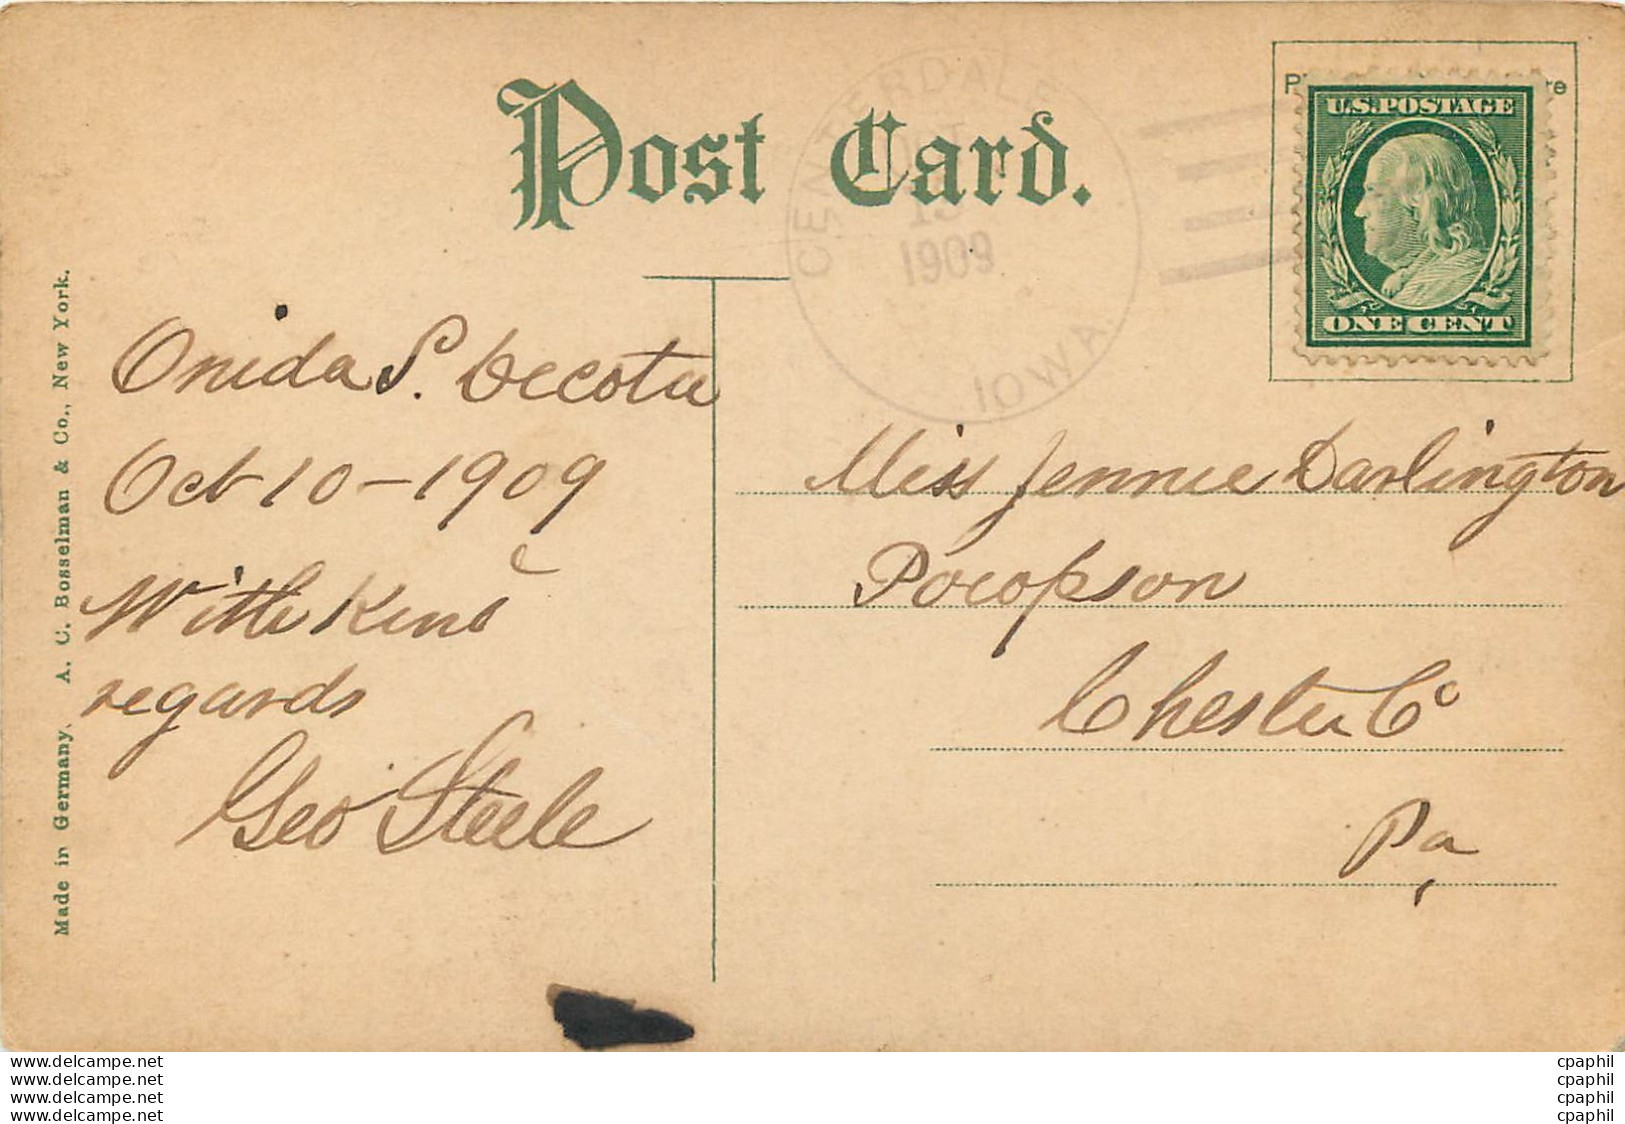 Post Card.
CENTERDALE
OCT
13
1909
IOWA.
U.S. POSTAGE
ONE CENT
Onida S. Decota
Oct 10 - 1909
With Kind
regards
Geo Steele
Miss Jennie Darlington
Pocopson
Chester Co
Pa
Made in Germany. A. C. Bosselman & Co., New York.
www.delcampe.net
www.delcampe.net
www.delcampe.net
www.delcampe.net
cpaphil
cpaphil
cpaphil
cpaphil